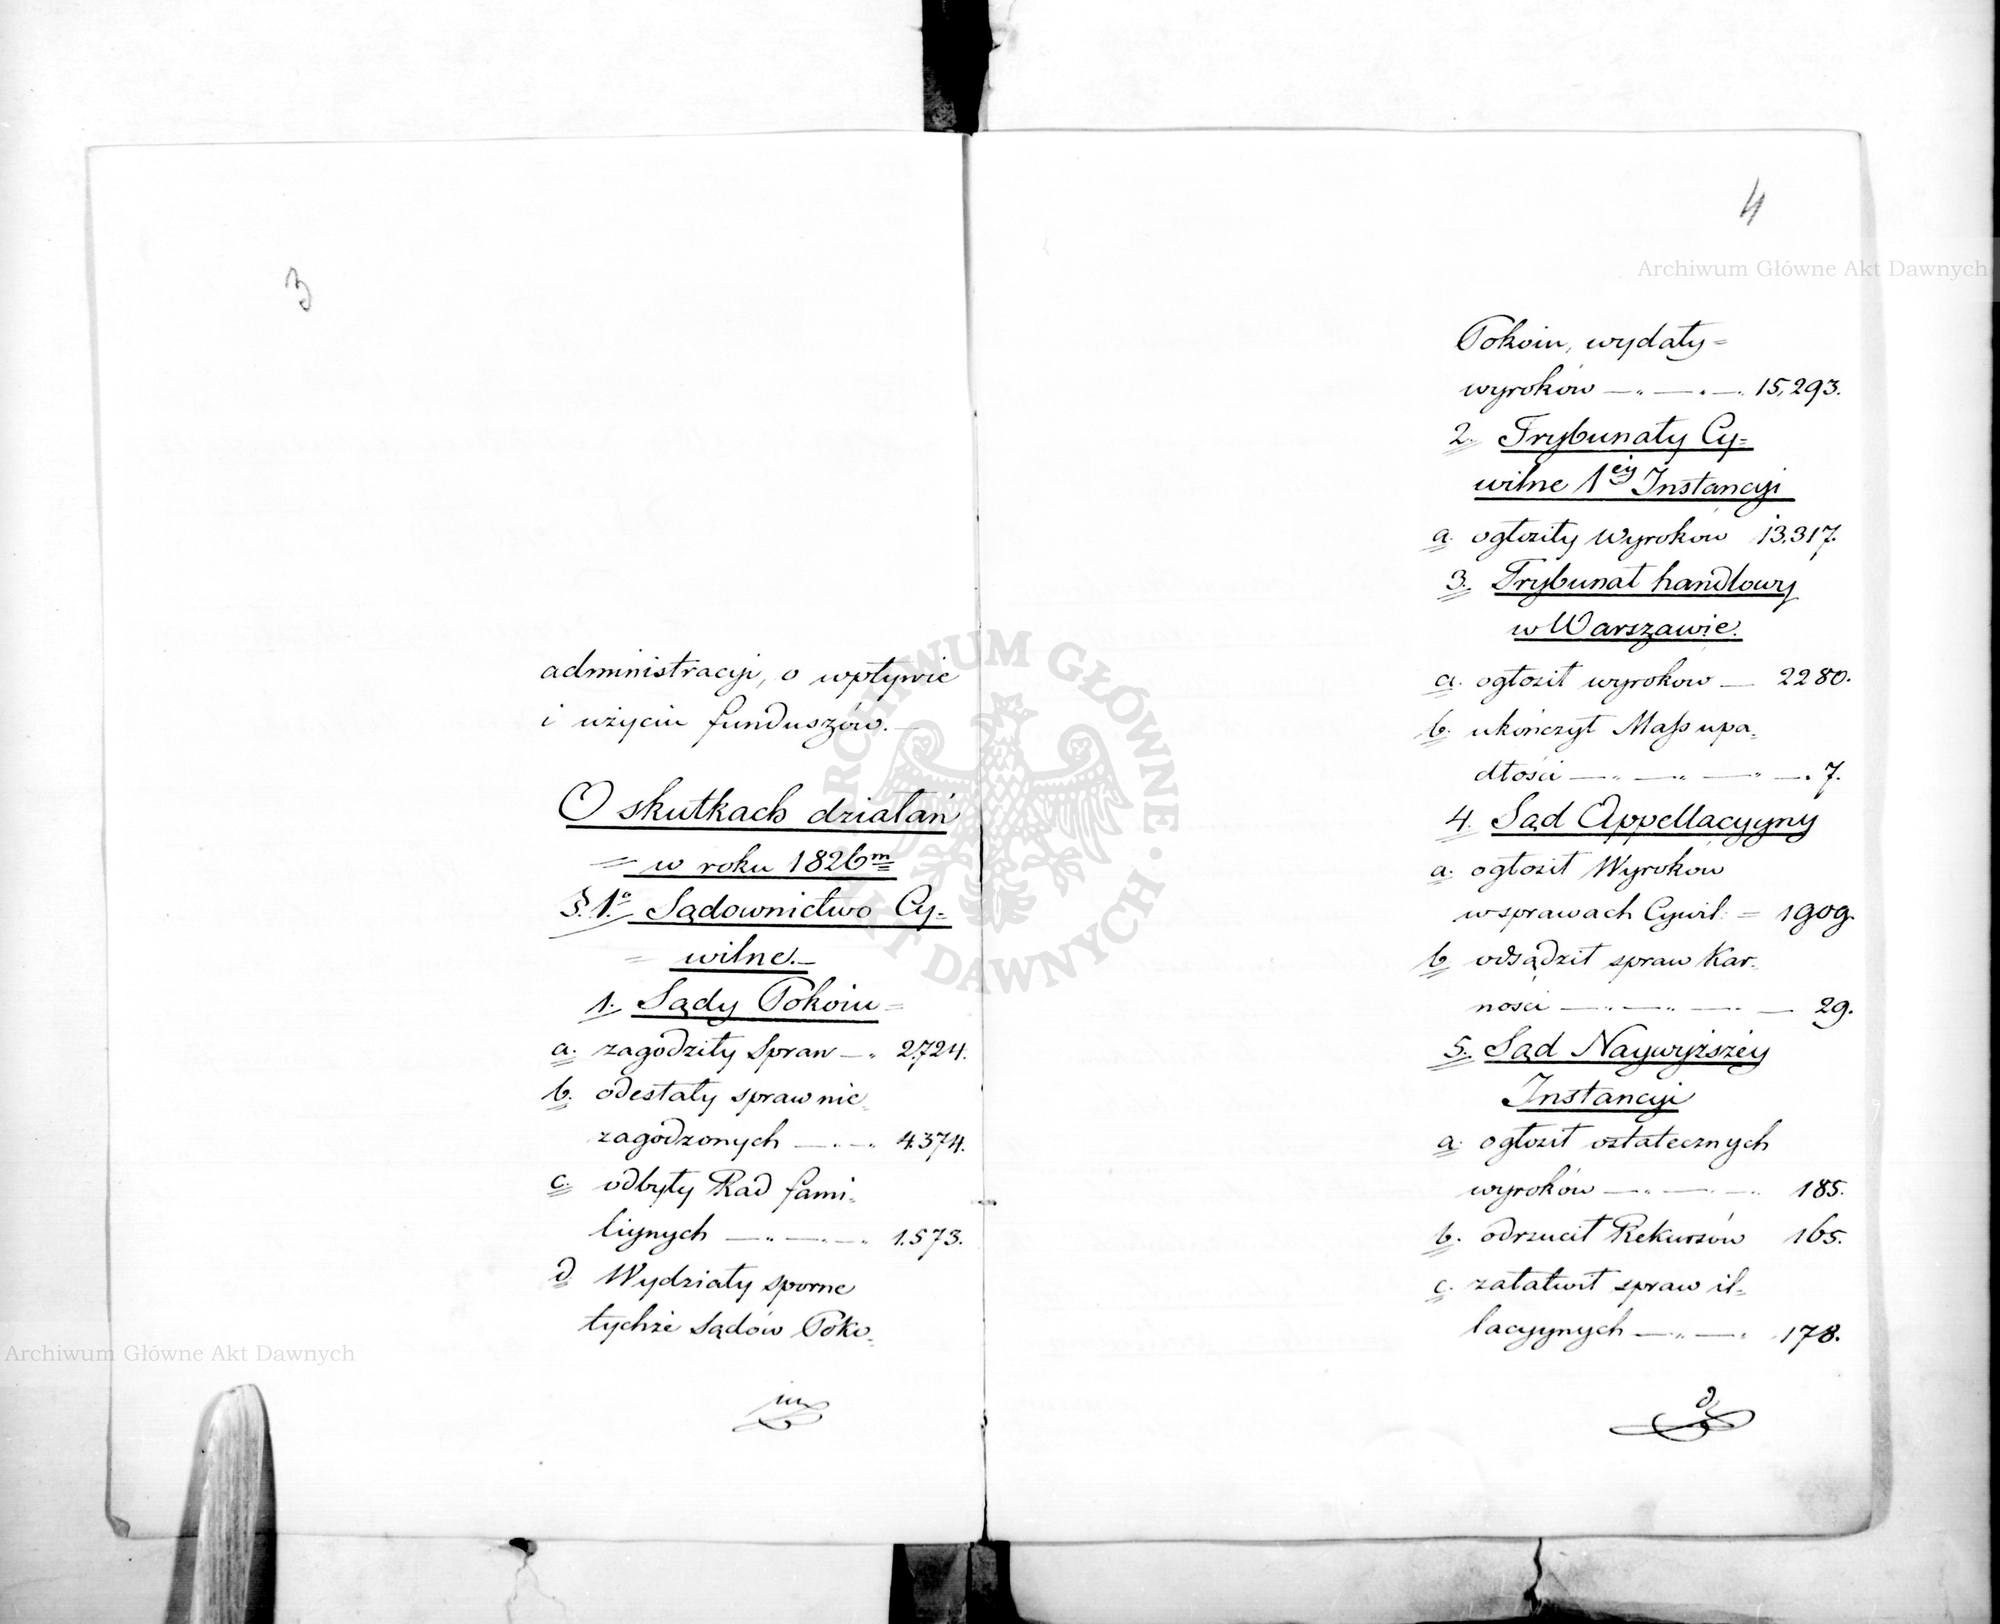 3
administracyi, o wpływie
i użyciu funduszów. —
O skutkach działań
= w roku 1826m
§. 1.o Sądownictwo Cy-
= wilne. —
1. Sądy Pokoiu =
a. zagodziły Spraw — „ 2,724.
b. odesłały spraw nie-
zagodzonych — „ — „ 4.374.
c. odbyły Rad fami-
liynych — „ — „ — „ 1.573.
d Wydziały sporne
tychże Sądów Poko-
iu
4
Pokoiu, wydały =
wyroków — „ — „ — „ 15,293.
2. Trybunały Cy-
wilne 1ey Instancyi
a. ogłosiły Wyroków 13.317.
3. Trybunał handlowy
w Warszawie.
a. ogłosił wyroków — 2280.
b. ukończył Mass upa-
dłości — „ — „ — „ — . 7.
4. Sąd Appellacyyny
a. ogłosił Wyroków
w sprawach Cywil: = 1909.
b osądził spraw Kar-
ności — „ — „ — „ — 29.
5. Sąd Naywyższey
Instancyi
a. ogłosił ostatecznych
wyroków — „ — „ 185.
b. odrzucił Rekursów 165.
c. załatwił spraw il-
lacyynych — „ — „ 178.
d
Archiwum Główne Akt Dawnych
Archiwum Główne Akt Dawnych
ARCHIWUM GŁÓWNE · AKT DAWNYCH ·